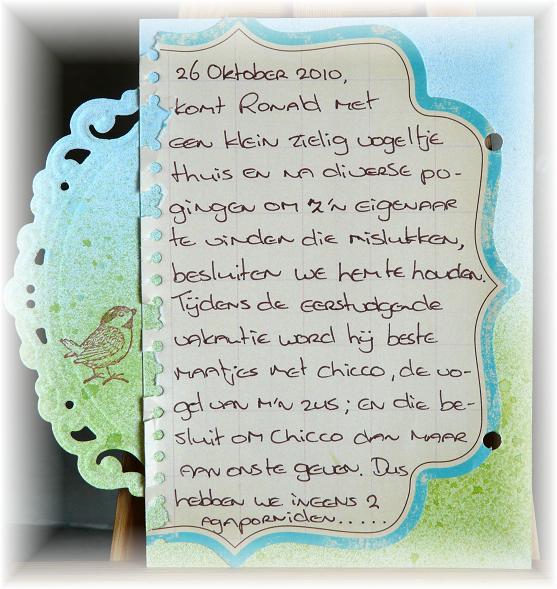 26 Oktober 2010,
komt Ronald met
een klein zielig vogeltje
thuis en na diverse po-
gingen om z'n eigenaar
te vinden die mislukken,
besluiten we hem te houden.
Tijdens de eerstvolgende
vakantie word hij beste
maatjes met Chicco, de vo-
gel van m'n zus; en die be-
sluit om Chicco dan maar
aan ons te geven. Dus
hebben we ineens 2
agaporniden.....